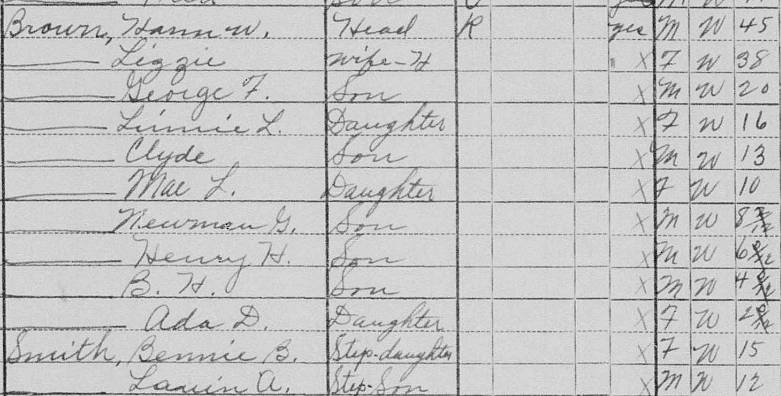 Son
Brown, Hann W. Head R yes M W 45
Lizzie Wife-H X F W 38
George F. Son X M W 20
Linnie L. Daughter X F W 16
Clyde Son X M W 13
Mae L. Daughter X F W 10
Newman G. Son X M W 8
Henry H. Son X M W 6
B. H. Son X M W 4
Ada D. Daughter X F W 2
Smith, Bennie B. Step-daughter X F W 15
A. Step-Son X M W 12